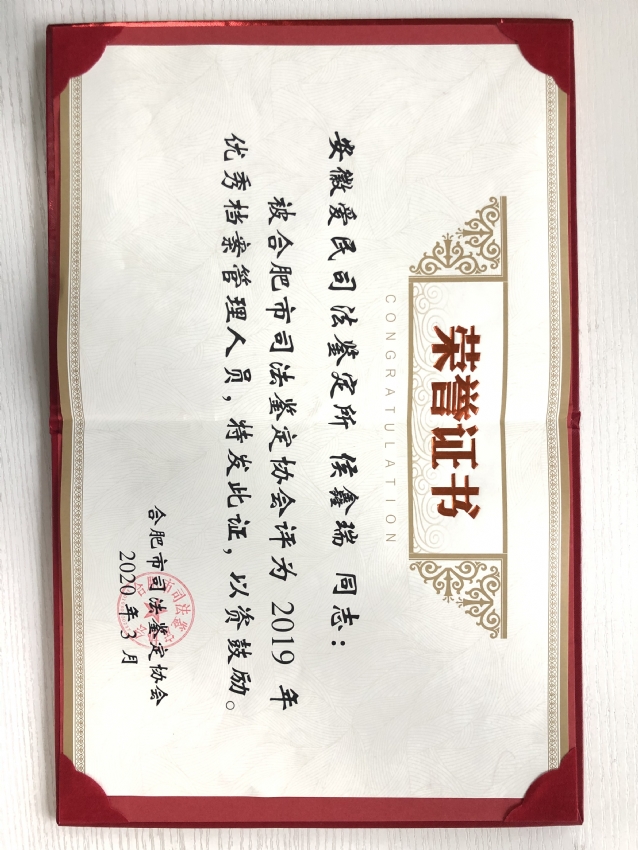 荣誉证书
CONGRATULATION
安徽爱民司法鉴定所 侯鑫瑞 同志：
被合肥市司法鉴定协会评为 2019 年
优秀档案管理人员，特发此证，以资鼓励。
合肥市司法鉴定协会
2020 年 3 月